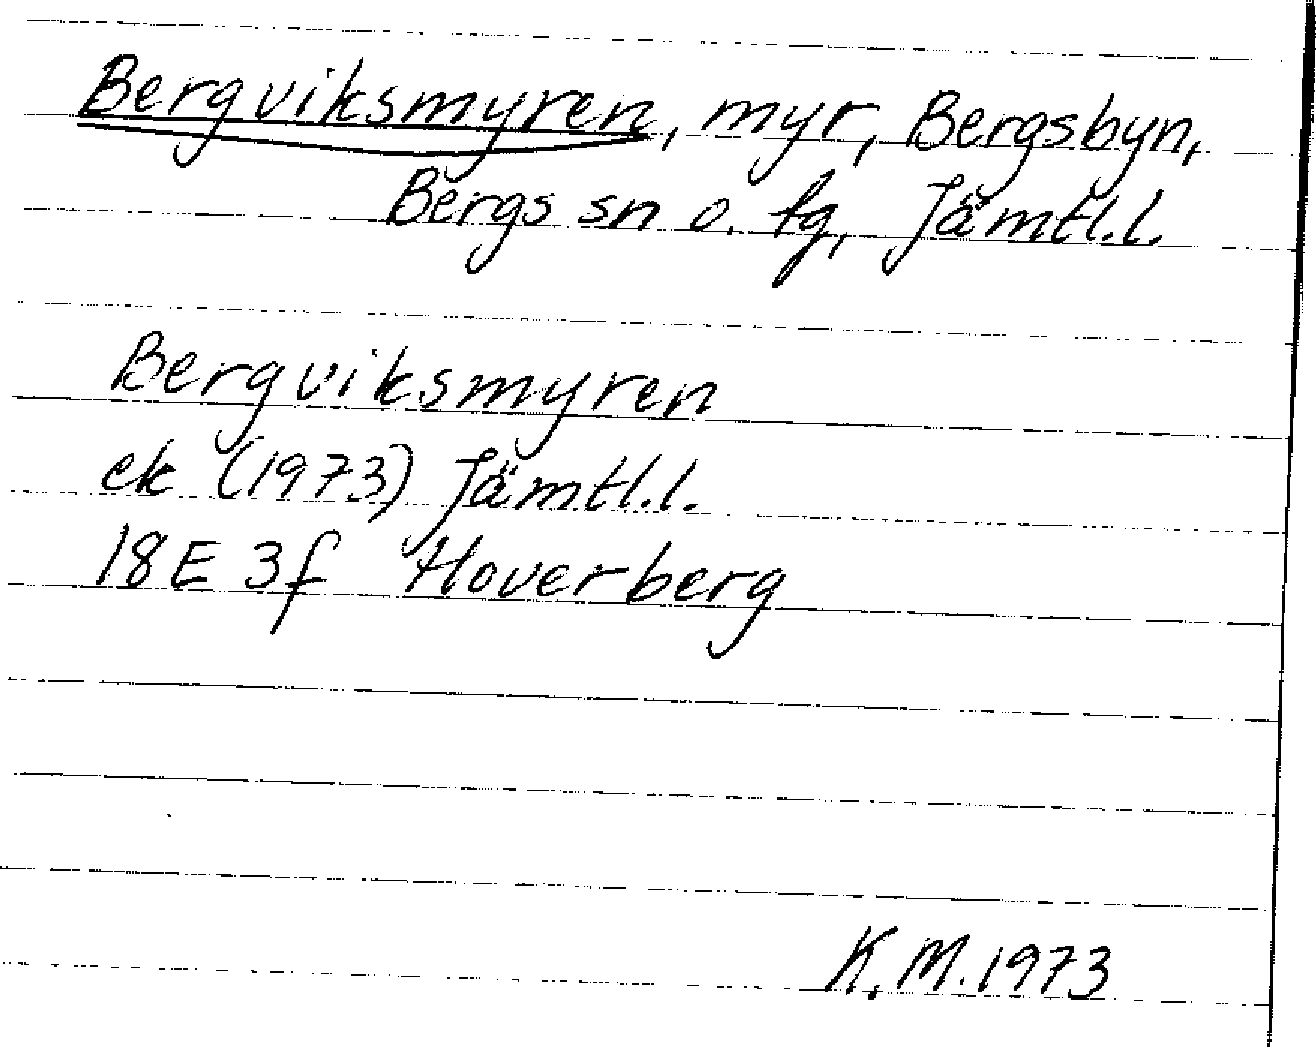 Bergviksmyren, myr, Bergsbyn,
Bergs sn o. tg, Jämtl.l.
Bergviksmyren
ek (1973) Jämtl.l.
18E 3f Hoverberg
K.M.1973